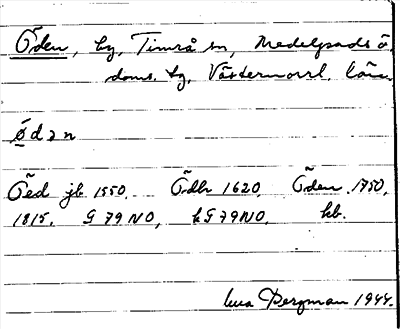 Öden, by, Timrå sn, Medelpads ö.
doms. tg, Västernorrl. län.
Ødən
Öed jb 1550. Ödh 1620. Öden 1750,
1815. G 79 NO, kG 79 NO, kb.
Bergman 1944.